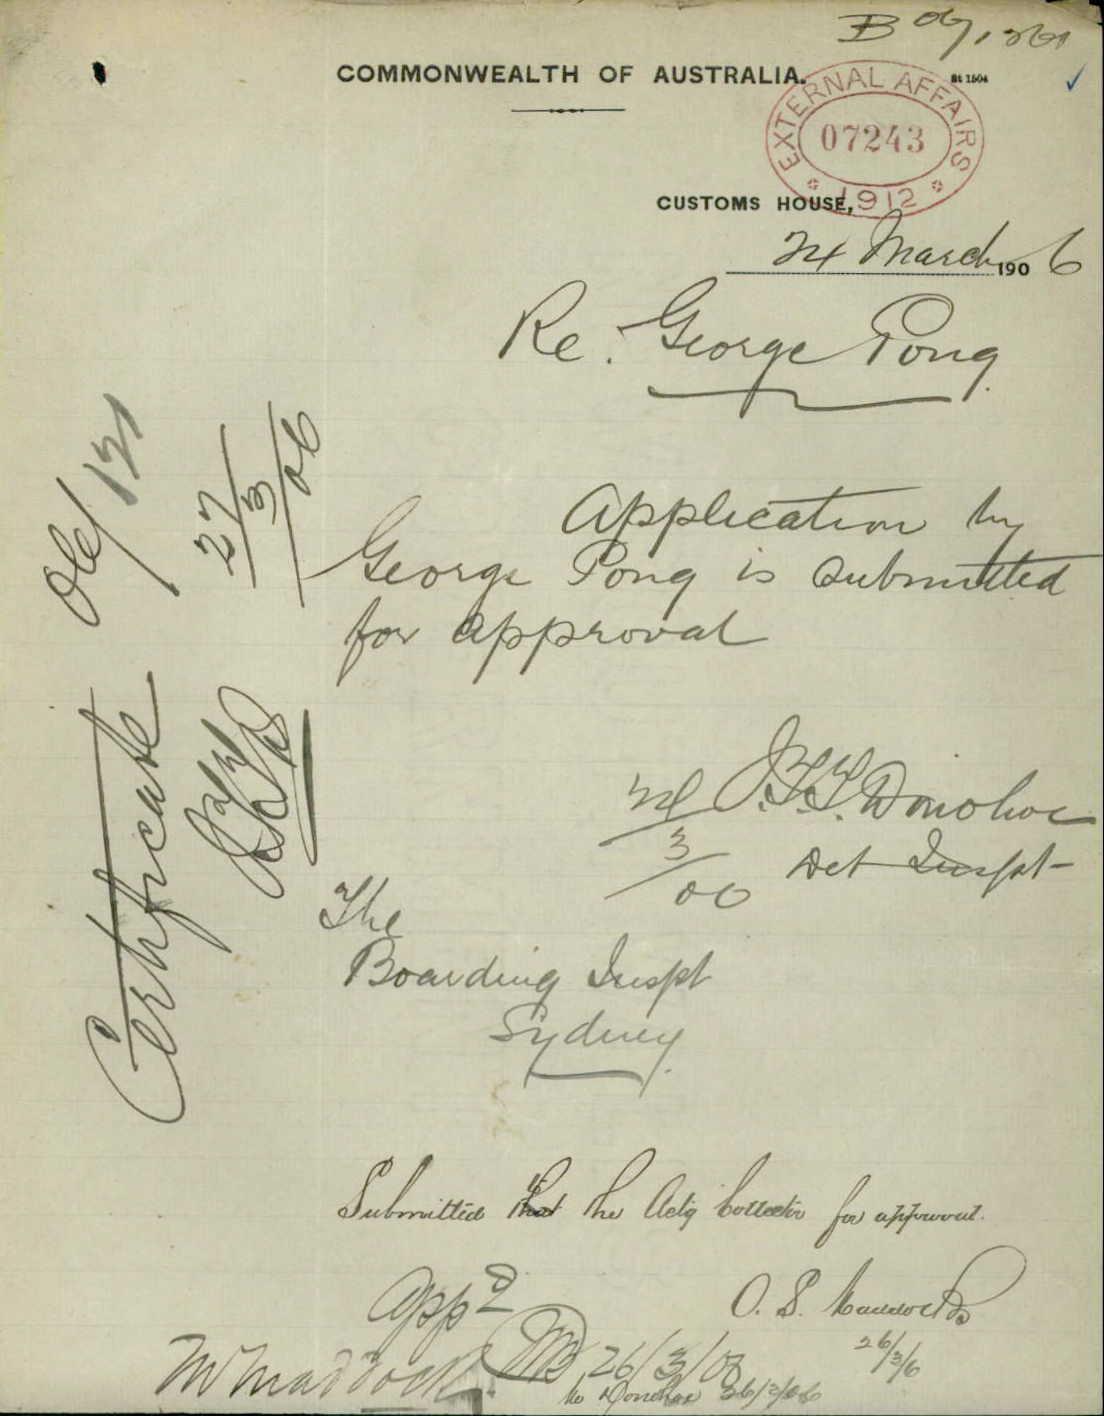 COMMONWEALTH OF AUSTRALIA.
St 1504
EXTERNAL AFFAIRS
07243
1912
CUSTOMS HOUSE,
24 March 1906
Re. George Pong
Application by
George Pong is submitted
for approval
J.T.T. Donohoe
Det Inspt
24/3/06
The
Boarding Inspt
Sydney
Submitted to the Actg Collector for approval.
Appd
26/3/06
26/3/6
Mr Maddocks
Mr Donohoe 26/3/06
Certificate
06/121
27/3/06